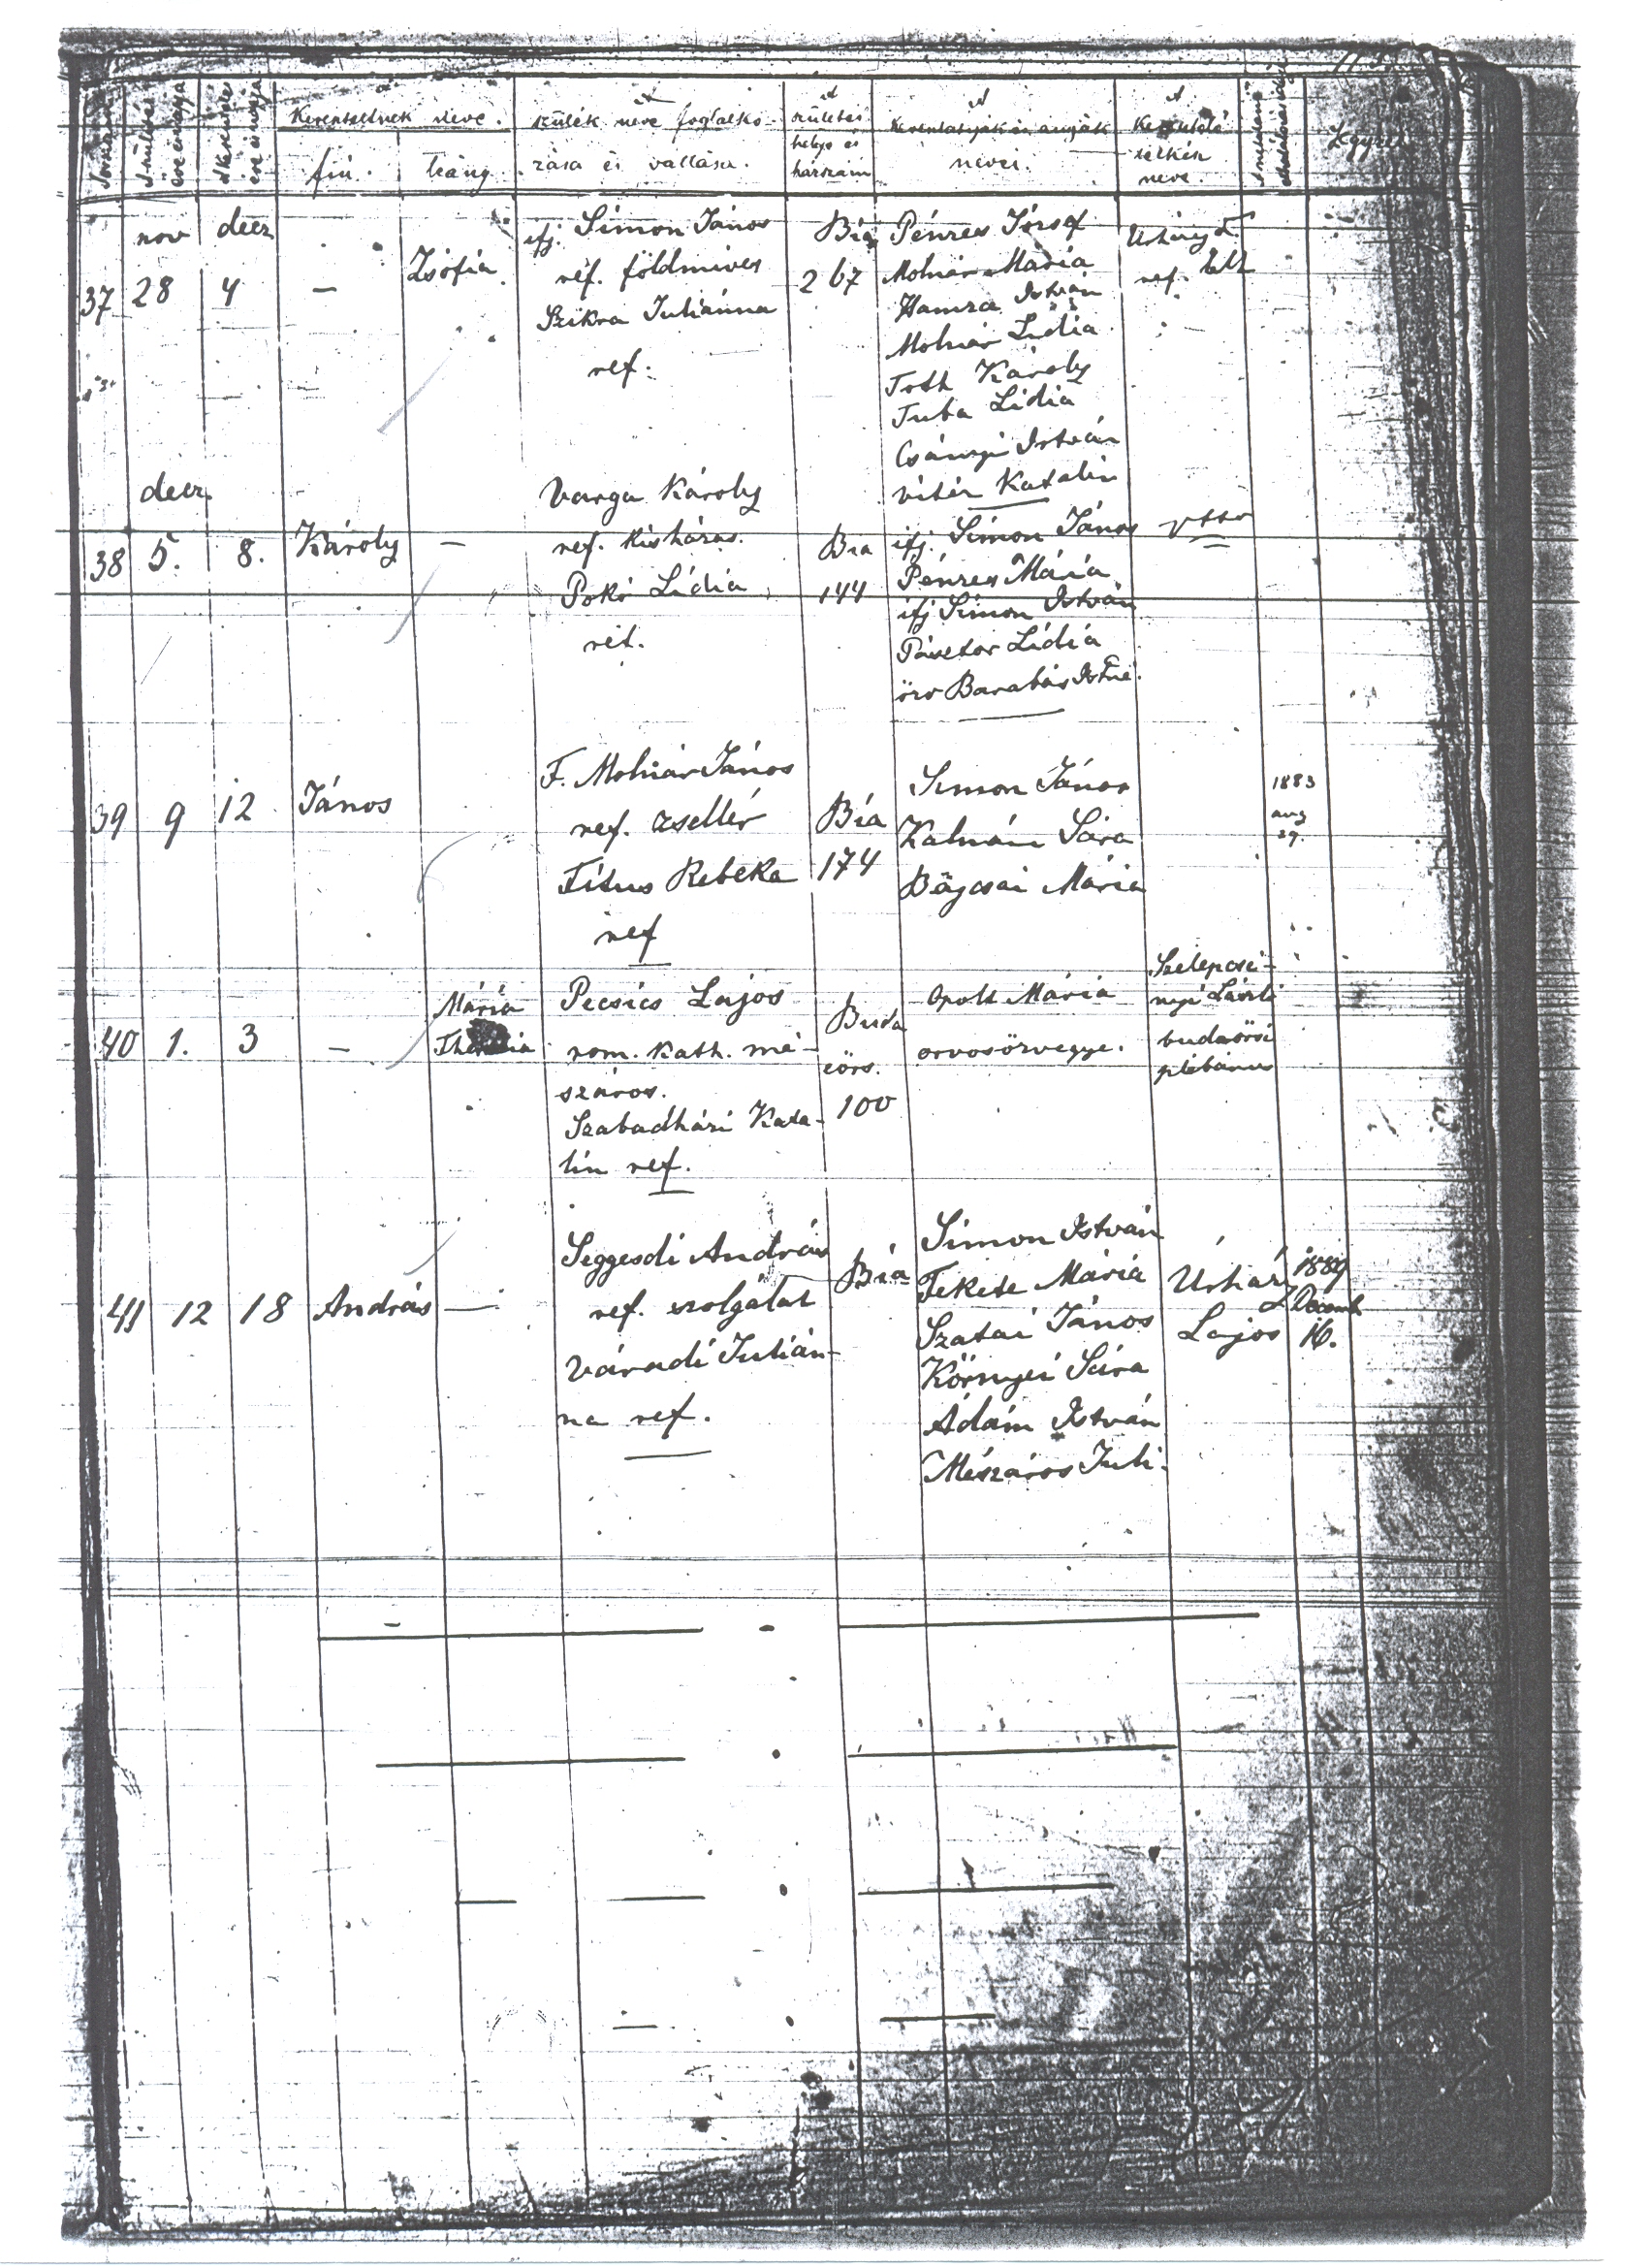 A
Kereszteltnek neve.
fiú. leány
A
szülék neve foglalko-
zása és vallása.
A
születés
helye és
házszám
A
Keresztatyák és anyák
nevei.
A
Keresztelő
lelkész
neve.
nov decz
37 28 4 – Zsófia
ifj. Simon János
ref. földmives
Szikra Juliánna
ref.
Bia
267
Pénzes József
Molnár Mária
Hamza István
Molnár Lidia
Toth Károly
Tuba Lidia
Csányi István
vitéz Katalin
ref.
decz.
38 5. 8. Károly –
Varga Károly
ref. kisházas.
Pokó Lídia
ref.
Bia
144
ifj. Simon János
Pénzes Mária
ifj Simon István
Pásztor Lídia
özv Barabás Istné.
39 9 12 János
F. Molnár János
ref. zsellér
Titus Rebeka
ref
Bia
174
Simon János
Kalmán Sára
Bágcsai Mária
1883
aug
29.
40 1. 3 –
Mária
Pecsics Lajos
rom. kath. mé-
száros.
Szabadhári Kata-
lin ref.
Buda
eörs.
100
Opolt Mária
orvosözvegye.
Szelepcsé-
nyi László
budaörsi
plébános
41 12 18 András –
Seggesdi András
ref. szolgálat
Váradi Julián-
na ref.
Bia
Simon István
Fekete Mária
Szatai János
Környei Sára
Ádám István
Mészáros Juli.
Lajos
1889
Decemb
16.